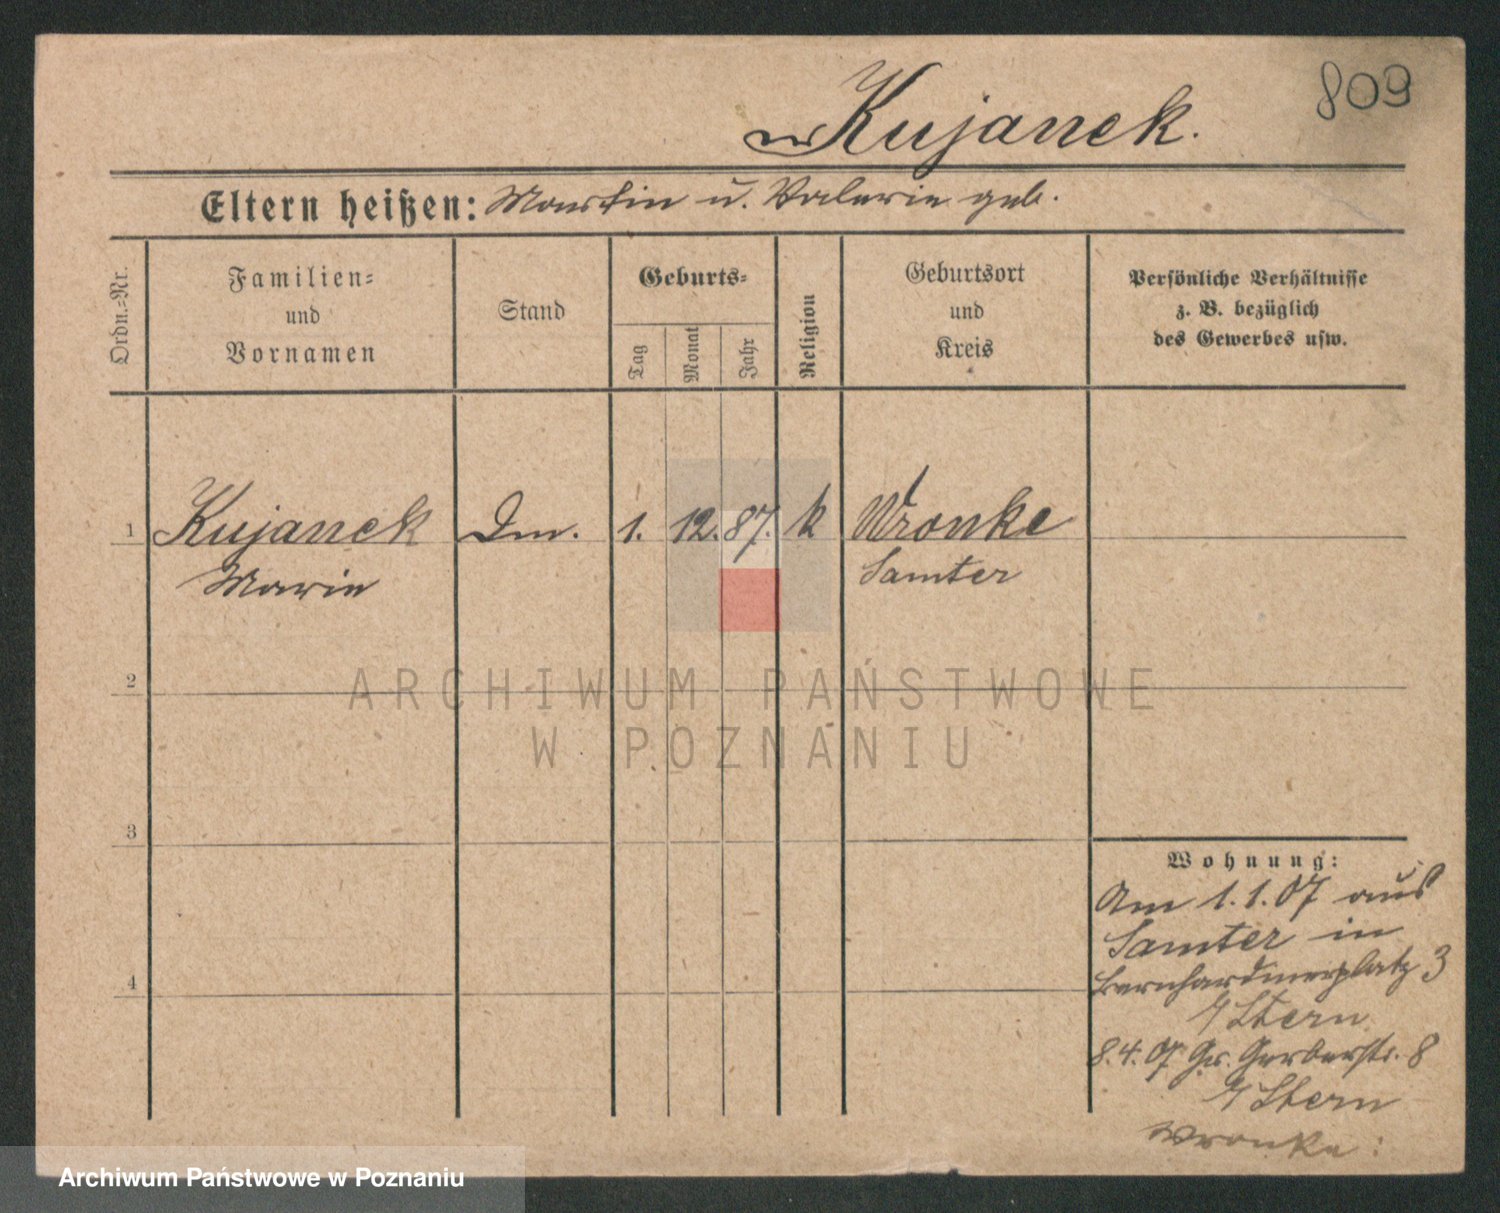 809
Kujanek.
Eltern heißen: Martin u. Valerie geb.
Ordn.-Nr.
Familien-
und
Vornamen
Stand
Geburts-
Tag
Monat
Jahr
Religion
Geburtsort
und
Kreis
Persönliche Verhältnisse
z. B. bezüglich
des Gewerbes usw.
1 Kujanek Dm. 1. 12. 87. k Wronke
Marie Samter
2
ARCHIWUM PAŃSTWOWE
W POZNANIU
3
Wohnung:
Am 1.1.07 aus
Samter in
Bernhardinerplatz 3
Stern
4
8.4.07 Gr. Gerberstr. 8
Stern
Wronke:
Archiwum Państwowe w Poznaniu